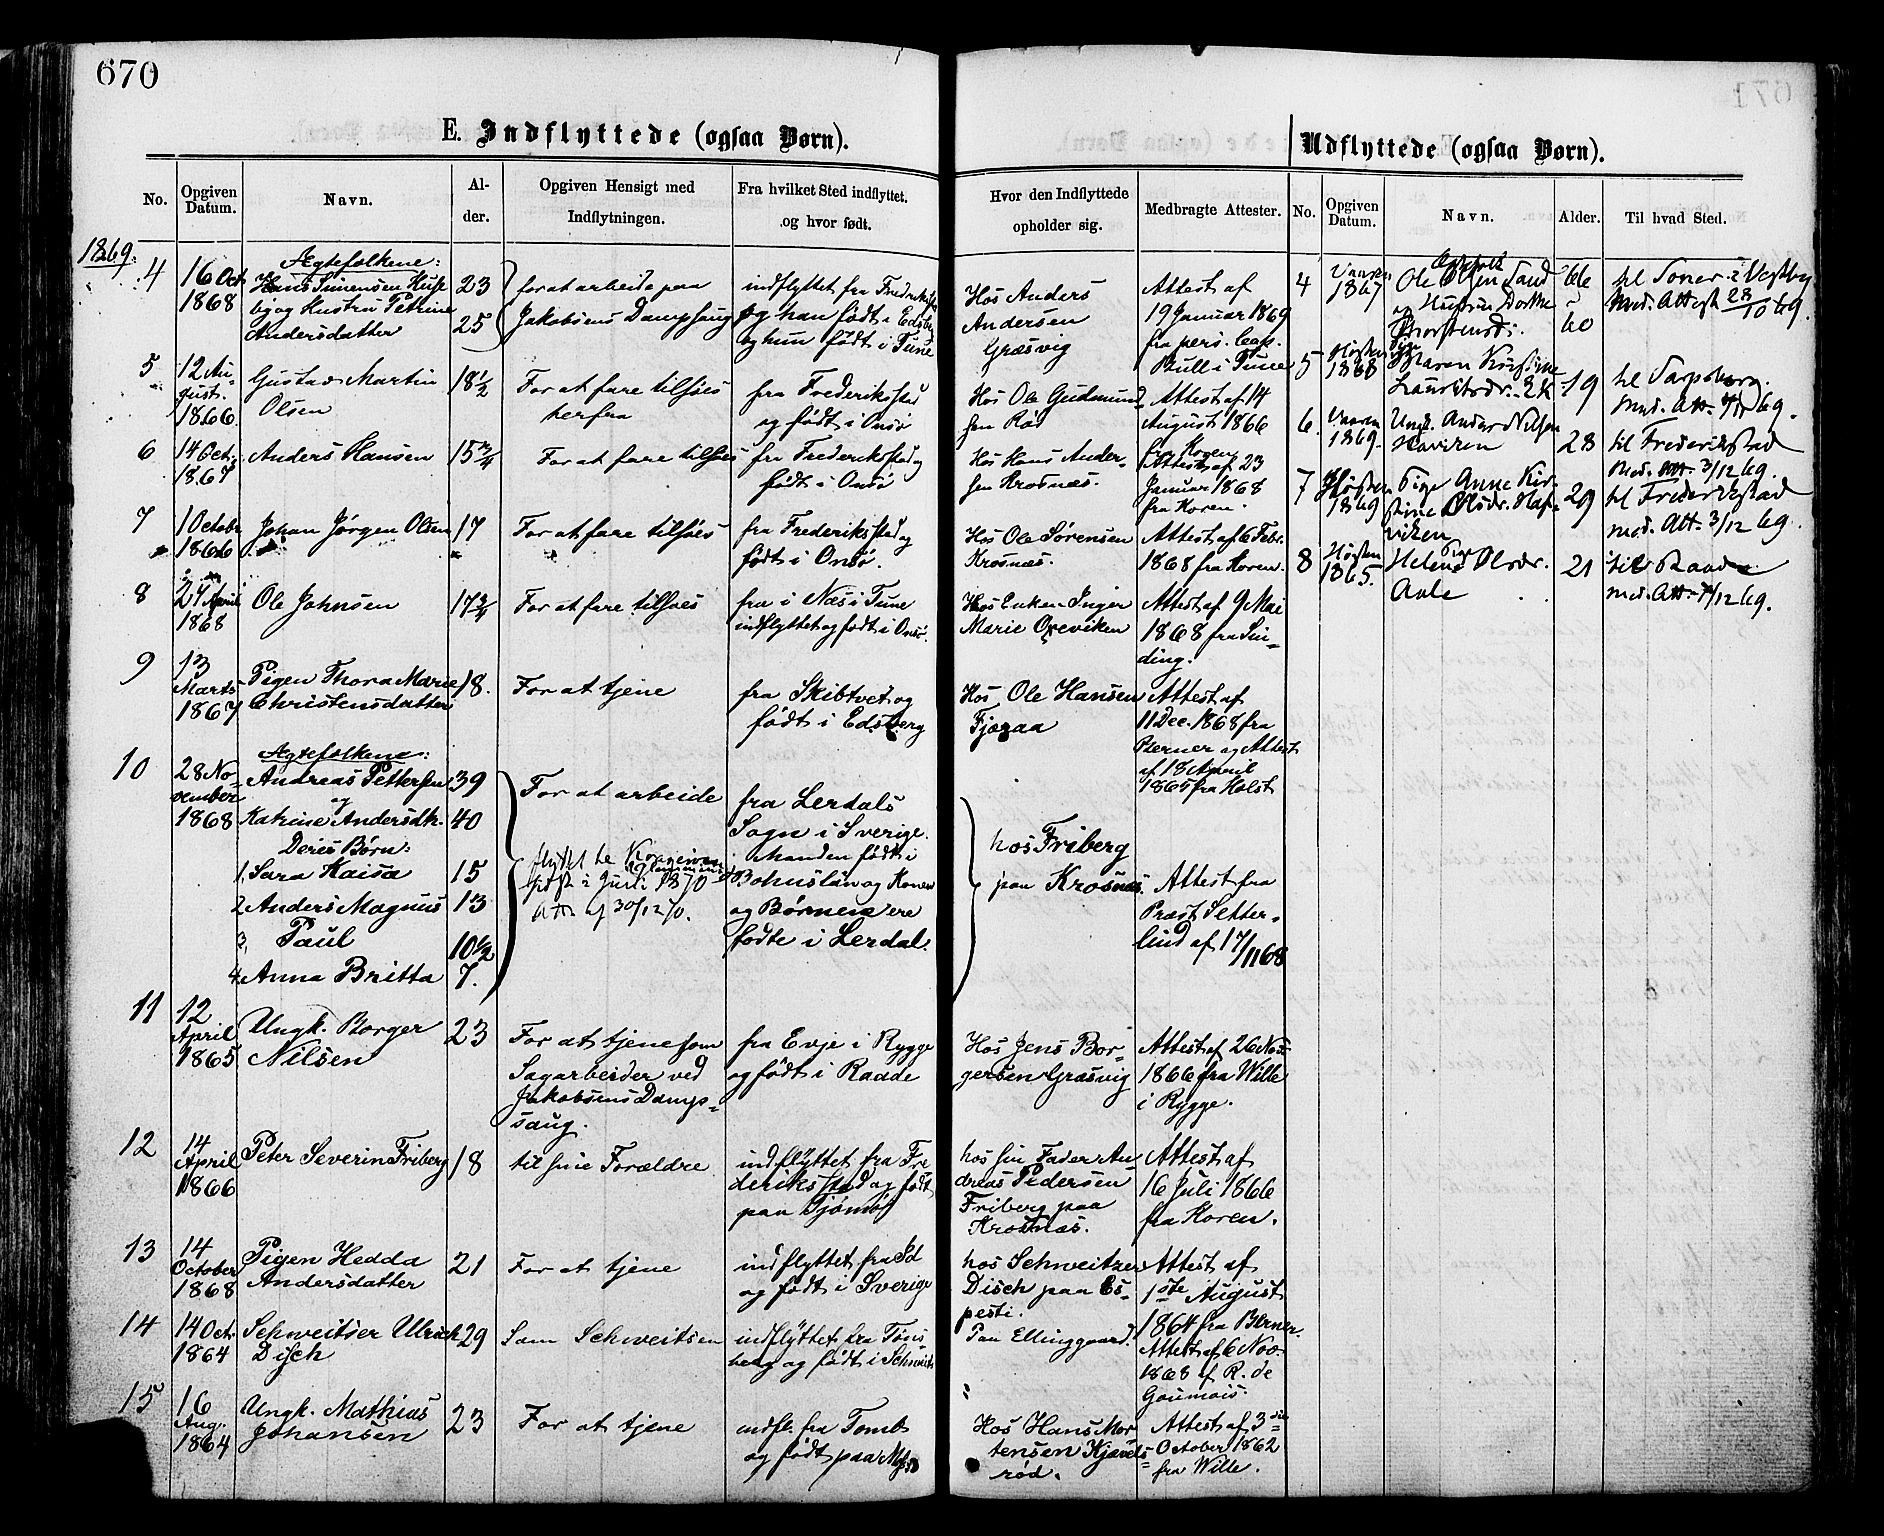 670
E. Indflyttede (ogsaa Børn).
No.
Opgiven Datum.
Navn.
Al-
der.
Opgiven Hensigt med
Indflytningen.
Fra hvilket Sted indflyttet.
og hvor født.
1869.
4
16 Oct
1868
Ægtefolkene:
Hans Simensen
og Hustru Petrine
Andersdatter
23
25
for at arbeide paa
Jakobsens Dampsaug
indflyttet fra
og han født i Edsberg
og hun født i Tune
5
12 Au-
gust.
1866
Gustav Martin
Olsen
18½
For at fare tilsøes
herfra
fra Frederikstad
og født i Onsø
6
14 Oct.
1867
Anders Hansen
15¾
For at fare tilsøes
fra Frederikstad og
født i Onsø
7
1 Octobr
1866
Johan Jørgen Olsen
17
For at fare tilsøes
fra Frederikstad og
født i Onsø.
8
24 April
1868
Ole Johnsen
17¾
For at fare tilsøes
fra i Næs i Tune
indflyttet og født i Onsø.
9
13
Marts
1867
Pigen Thora Marie
Christensdatter
18.
For at tjene
fra Skibtvet og
født i Edsberg
10
28 No-
vember
1868
Ægtefolkene:
Andreas Pettersen
og
Katrine Andersdtr.
Deres Børn:
1, Sara Kaisa
2 Anders Magnus
3, Paul
4. Anna Britta
39
40
15
13
10½
7.
For at arbeide
flyttet
i Juli 1870
Att. af 30/12 70.
fra Lerdals
Sogn i Sverige.
Manden født i
Bohuslän og Konen
og Børnene ere
fødte i Lerdal.
11
12
April
1865
Ungk. Borger
Nilsen
23
For at tjene som
Sagarbeider ved
Jakobsens Damp-
saug.
fra Evje i Rygge
og født i Raade
12
14
April
1866
Peter Severin Friberg
18
til sine Forældre
indflyttet fra Fre
derikstad og født
paa Tjømø
13
14
October
1868
Pigen Hedda
Andersdatter
21
For at tjene
indflyttet fra Id
og født i Sverige
14
14 Oct.
1864
Schweitser Ulrich
Disch
29
Som Schweitser
indflyttet fra Tøns
berg og født i Schweits
15
16
Aug.
1864
Ungk. Mathias
Johansen
23
For at tjene
indfl. fra Tomb
og født paa
671
Udflyttede (ogsaa Børn).
Hvor den Indflyttede
opholder sig.
Medbragte Attester.
No.
Opgiven Datum.
Navn.
Alder.
Til hvad Sted.
Hos Anders
Andersen
Græsvig
Attest af
19 Januar 1869
fra pers. Cap.
Bull i Tune
Hos Ole Gudmund
sen Rød
Attest af 14
August 1866
fra Koren
Hos Hans Ander-
sen Krosnæs.
Attest af 23
Januar 1868
fra Koren.
Hos Ole Sørensen
Krosnæs.
Attest af 6 Febr.
1868 fra Koren.
Hos Enken Inger
Marie Oxeviken
Attest af 9 Mai
1868 fra Sin-
ding.
Hos Ole Hansen
Fjæraa
Attest af
11 Dec. 1868 fra
Berner og Attest
af 18 April
1865 fra Holst
hos Friberg
paa Krosnæs.
Attest fra
Præst Setter-
lind af 17/11 68
Hos Jens Bor-
gersen Græsvig
Attest af 26 Nov.
1866 fra Wille
i Rygge.
hos sin Fader An
dreas Pedersen
Friberg paa
Krosnæs.
Attest af
16 Juli 1866
fra Koren.
hos Schweitzer
Disch paa Es-
pesti.
Attest af
1ste August
1864 fra Berner.
Paa Ellinggaard.
Attest af 6 Nov.
1868 af R. de
Goumois.
Hos Hans Mor
tensen Kjæ
rød.
Attest af 3die
October 1862
fra Wille.
4
Vaaren
1867
Ole Olsen Sand
og Hustru Dorthe
66
60
til Soner i Vestby
med Attest 28/10 69.
5
Høsten
1868
Pige
Maren Kirstine
Lauritsdr.
19
til Sarpsborg.
med. Att.
6.
Vaaren
1869.
Ungk. Anders Nilsen
28
til Frederikstad
med. Att. 3/12 69.
7
Høsten
1869
Pige Anne Kir-
stine Olsdr.
viken
29
til Frederikstad
med. Att. 3/12 69.
8
Høsten
1865.
Pige
Helene Olsdr.
Aale
21
til Raade
med. Att. 7/12 69.